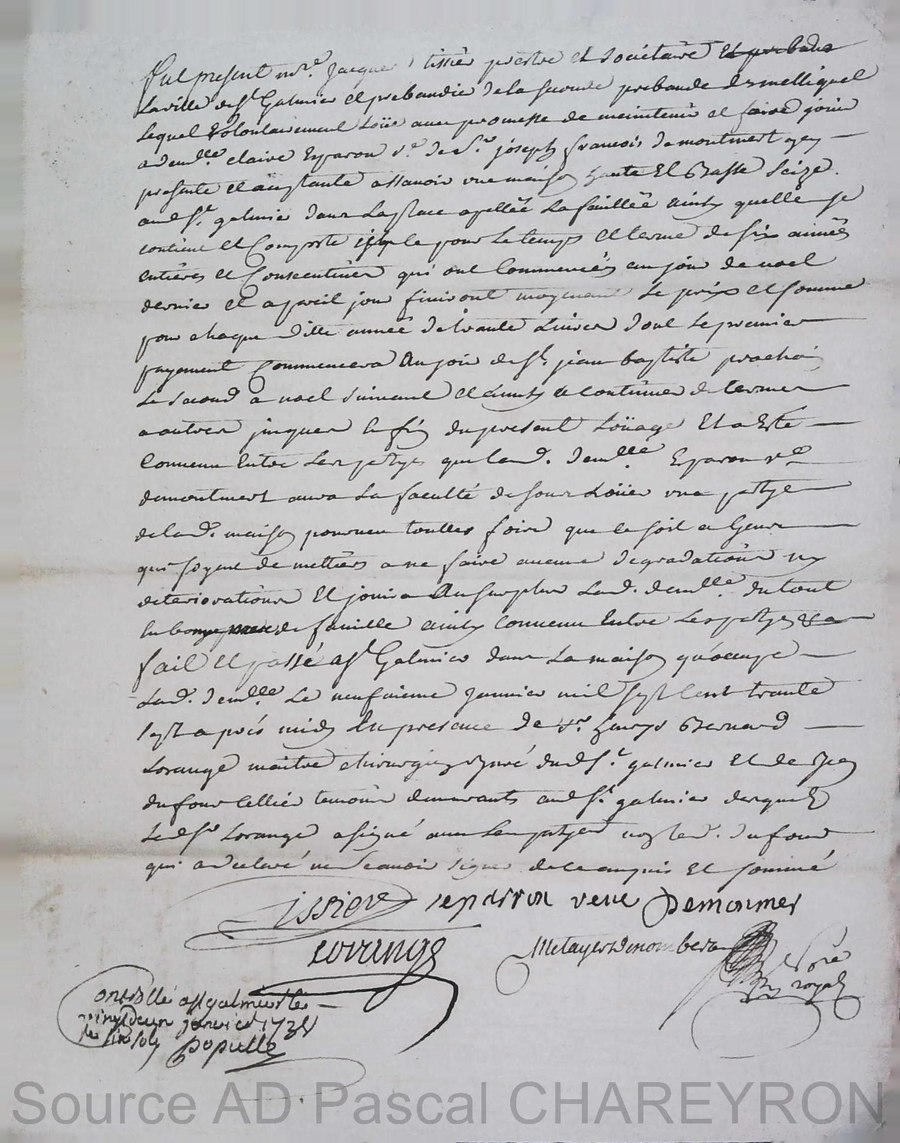 fut present mre. Jacques tissier prestre et sociétaire
La ville de St. Galmier et prebandié de la seconde prebande
Lequel volontairement Loüe avec promesse de meintenir et faire joüir
a demlle. claire Esparon ve. de Sr. joseph francois de montmert
presente et aceptante assavoir une maison haute Et Basse Seize
aud. St. galmier dans La place apellée La faillée ainsy quelle se
contient et Comporte pour Le temps et terme de six années
entieres et Consecutives qui ont Commencées au jour de noel
dernier et a pareil jour finiront moyenant Le prix et somme
pour chaque ditte année de trante Livres dont Le premier
payement Commencera Au jour de St. jean baptiste prochain
Le second a noel suivant et ainsy a continuer de termes
a autres jusques la fin du present Loüage Et a Esté
Convenu Entre Les partyes que lad. demlle. Esparon ve.
demontmert aura La faculté de sous Loüer une partye
de lad. maison pourveu touttes fois que ce soit a Gens
qui soyent de mettiers a ne faire aucune degradations ny
deteriorations Et jouira Au surplus Lad. demlle. du tout
En bon de famille ainsy Convenu Entre Les partyes
fait et passé a St. Galmier dans La maison qu'occupe
Lad. demlle. Le neufvieme janvier mil sept Cent trante
sept aprés midy En presence de Sr. Bernard
Lorange maitre chirurgien juré dud. St. galmier Et de
dufour cellier temoins demeurants aud. St. galmier desquels
Led. Sr. Lorange a signé avec Les partyes non led. dufour
qui a declaré ne scavoir signer de ce enquis Et sommé
tissier esparron veue Demonmer
Lorange
nore royal
Controllé a St galmier le
vingt deux janvier 173
Populle
Source AD Pascal CHAREYRON